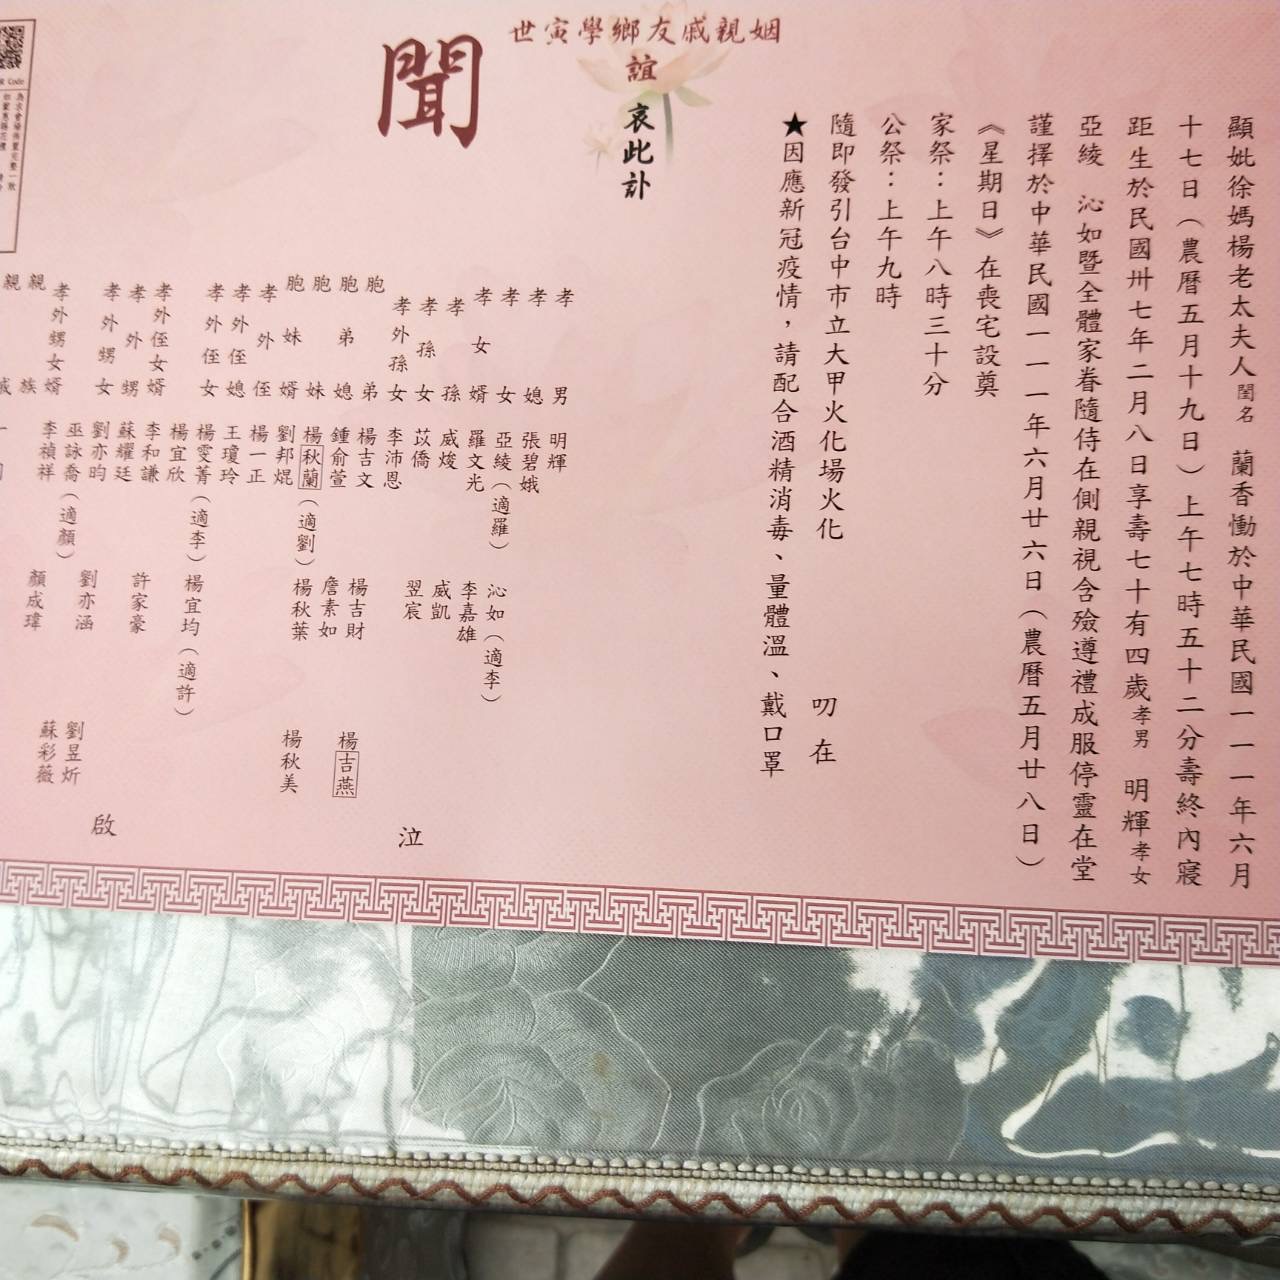 顯妣徐媽楊老太夫人閨名 蘭香慟於中華民國一一一年六月
十七日（農曆五月十九日）上午七時五十二分壽終內寢
距生於民國卅七年二月八日享壽七十有四歲孝男 明輝孝女
亞綾 沁如暨全體家眷隨侍在側親視含殮遵禮成服停靈在堂
謹擇於中華民國一一一年六月廿六日（農曆五月廿八日）
《星期日》在喪宅設奠
家祭：上午八時三十分
公祭：上午九時
隨即發引台中市立大甲火化場火化 叨在
★因應新冠疫情，請配合酒精消毒、量體溫、戴口罩
世寅學鄉友戚親姻
誼 哀此訃
聞
孝男 明輝
孝媳 張碧娥
孝女 亞綾（適羅） 沁如（適李）
孝女婿 羅文光 李嘉雄
孝孫 威焌 威凱
孝孫女 苡僑 翌宸
孝外孫女 李沛恩
胞弟 楊吉文 楊吉財 楊吉燕
胞弟媳 鍾俞萱 詹素如
胞妹 楊秋蘭（適劉） 楊秋葉 楊秋美
胞妹婿 劉邦焜
孝外侄 楊一正
孝外侄媳 王瓊玲
孝外侄女 楊雯菁（適李） 楊宜均（適許）
楊宜欣
孝外侄女婿 李和謙 許家豪
孝外甥 蘇耀廷
孝外甥女 劉亦昀 劉亦涵 劉昱炘
巫詠喬（適顏） 蘇彩薇
孝外甥女婿 李禎祥 顏成瑋
親族
親戚
泣
啟